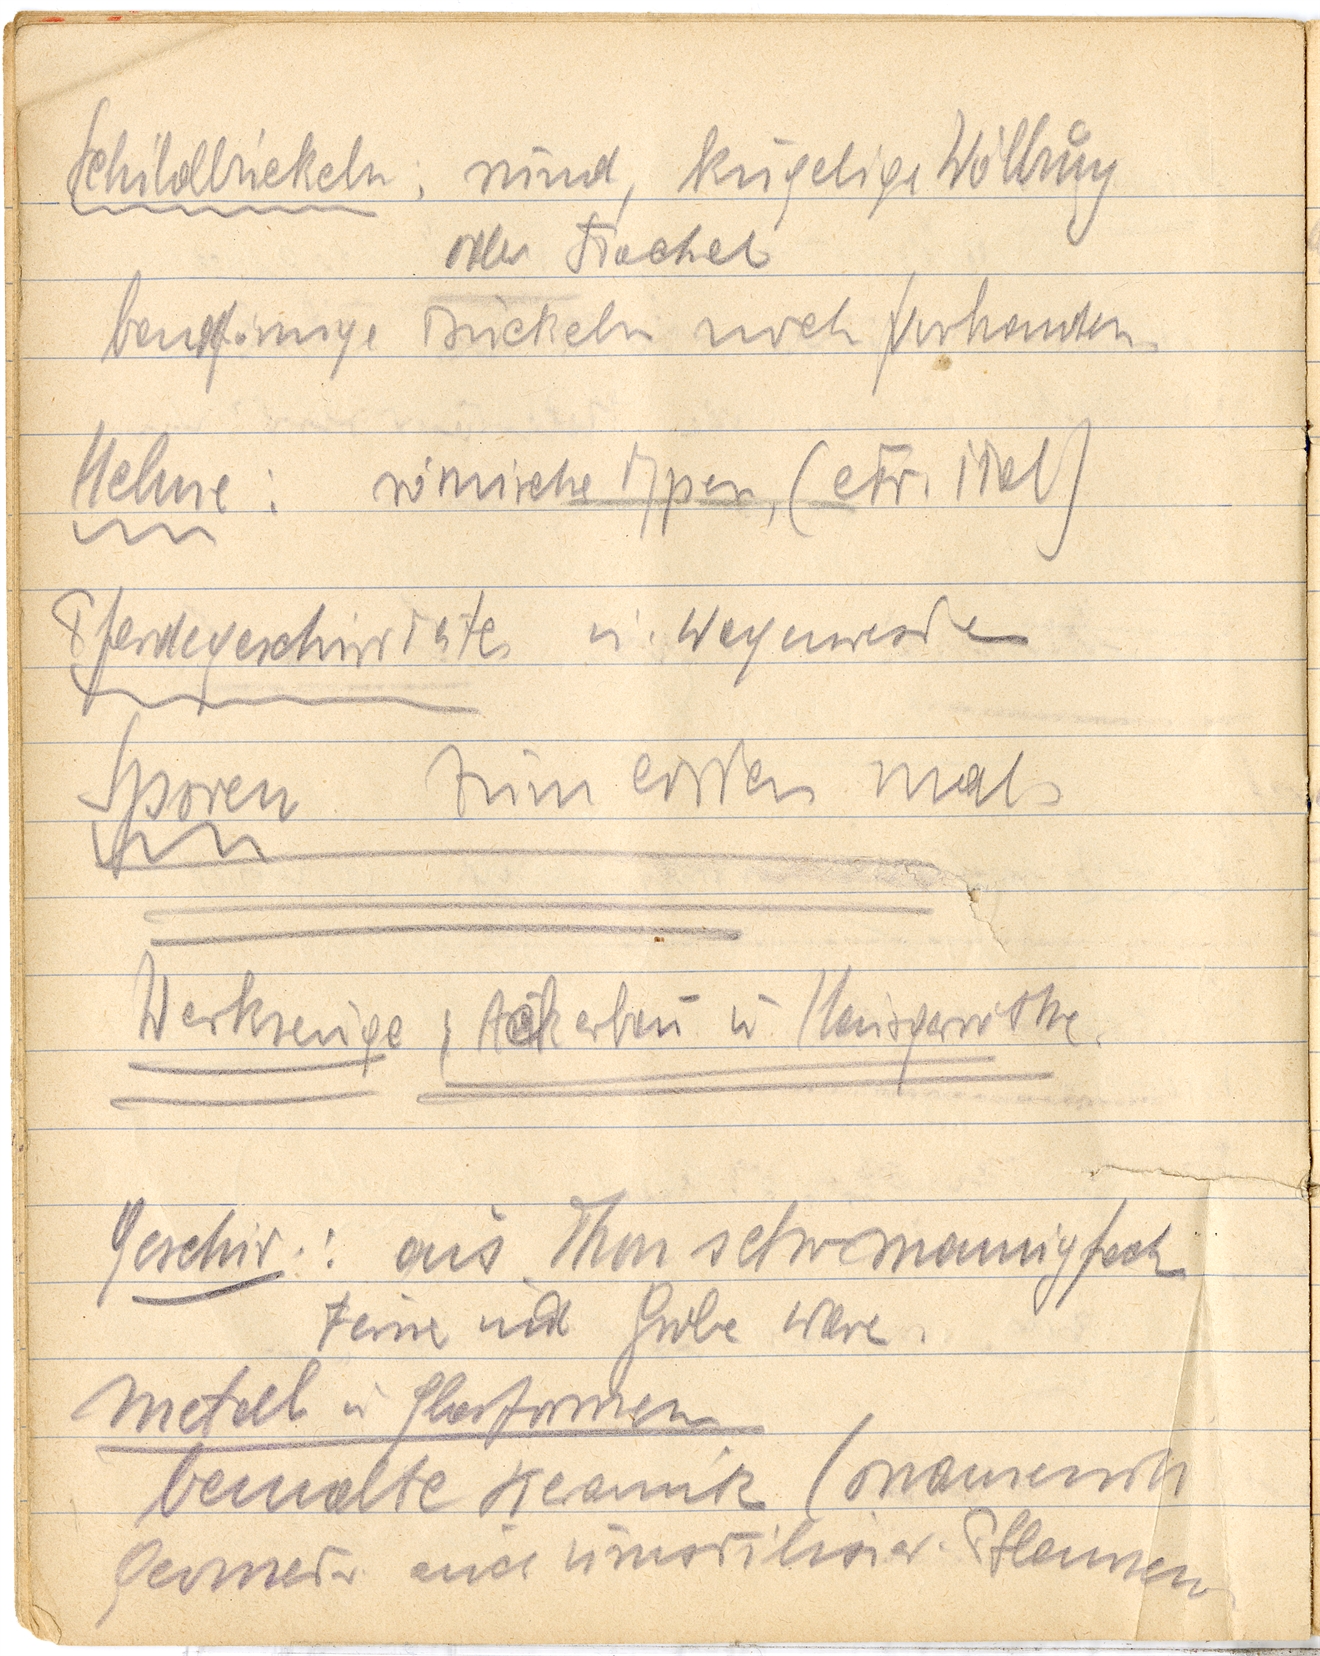 Schildbückeln: rund, kugelige Wölbung
oder Stachel
bandförmige Bückeln noch forhanden
Helme: römische Typen, (etr. ital)
Pferdegeschirr u. Wagenreste
Sporen zum ersten mal
Werkzeuge, Ackerbau u. Hausgeräthe.
Geschir.: aus Thon sehr mannigfach
Feine und Grobe ware.
Metall u Glasformen
bemalte Keramik (ornament
Geometr. auch Pflanzen